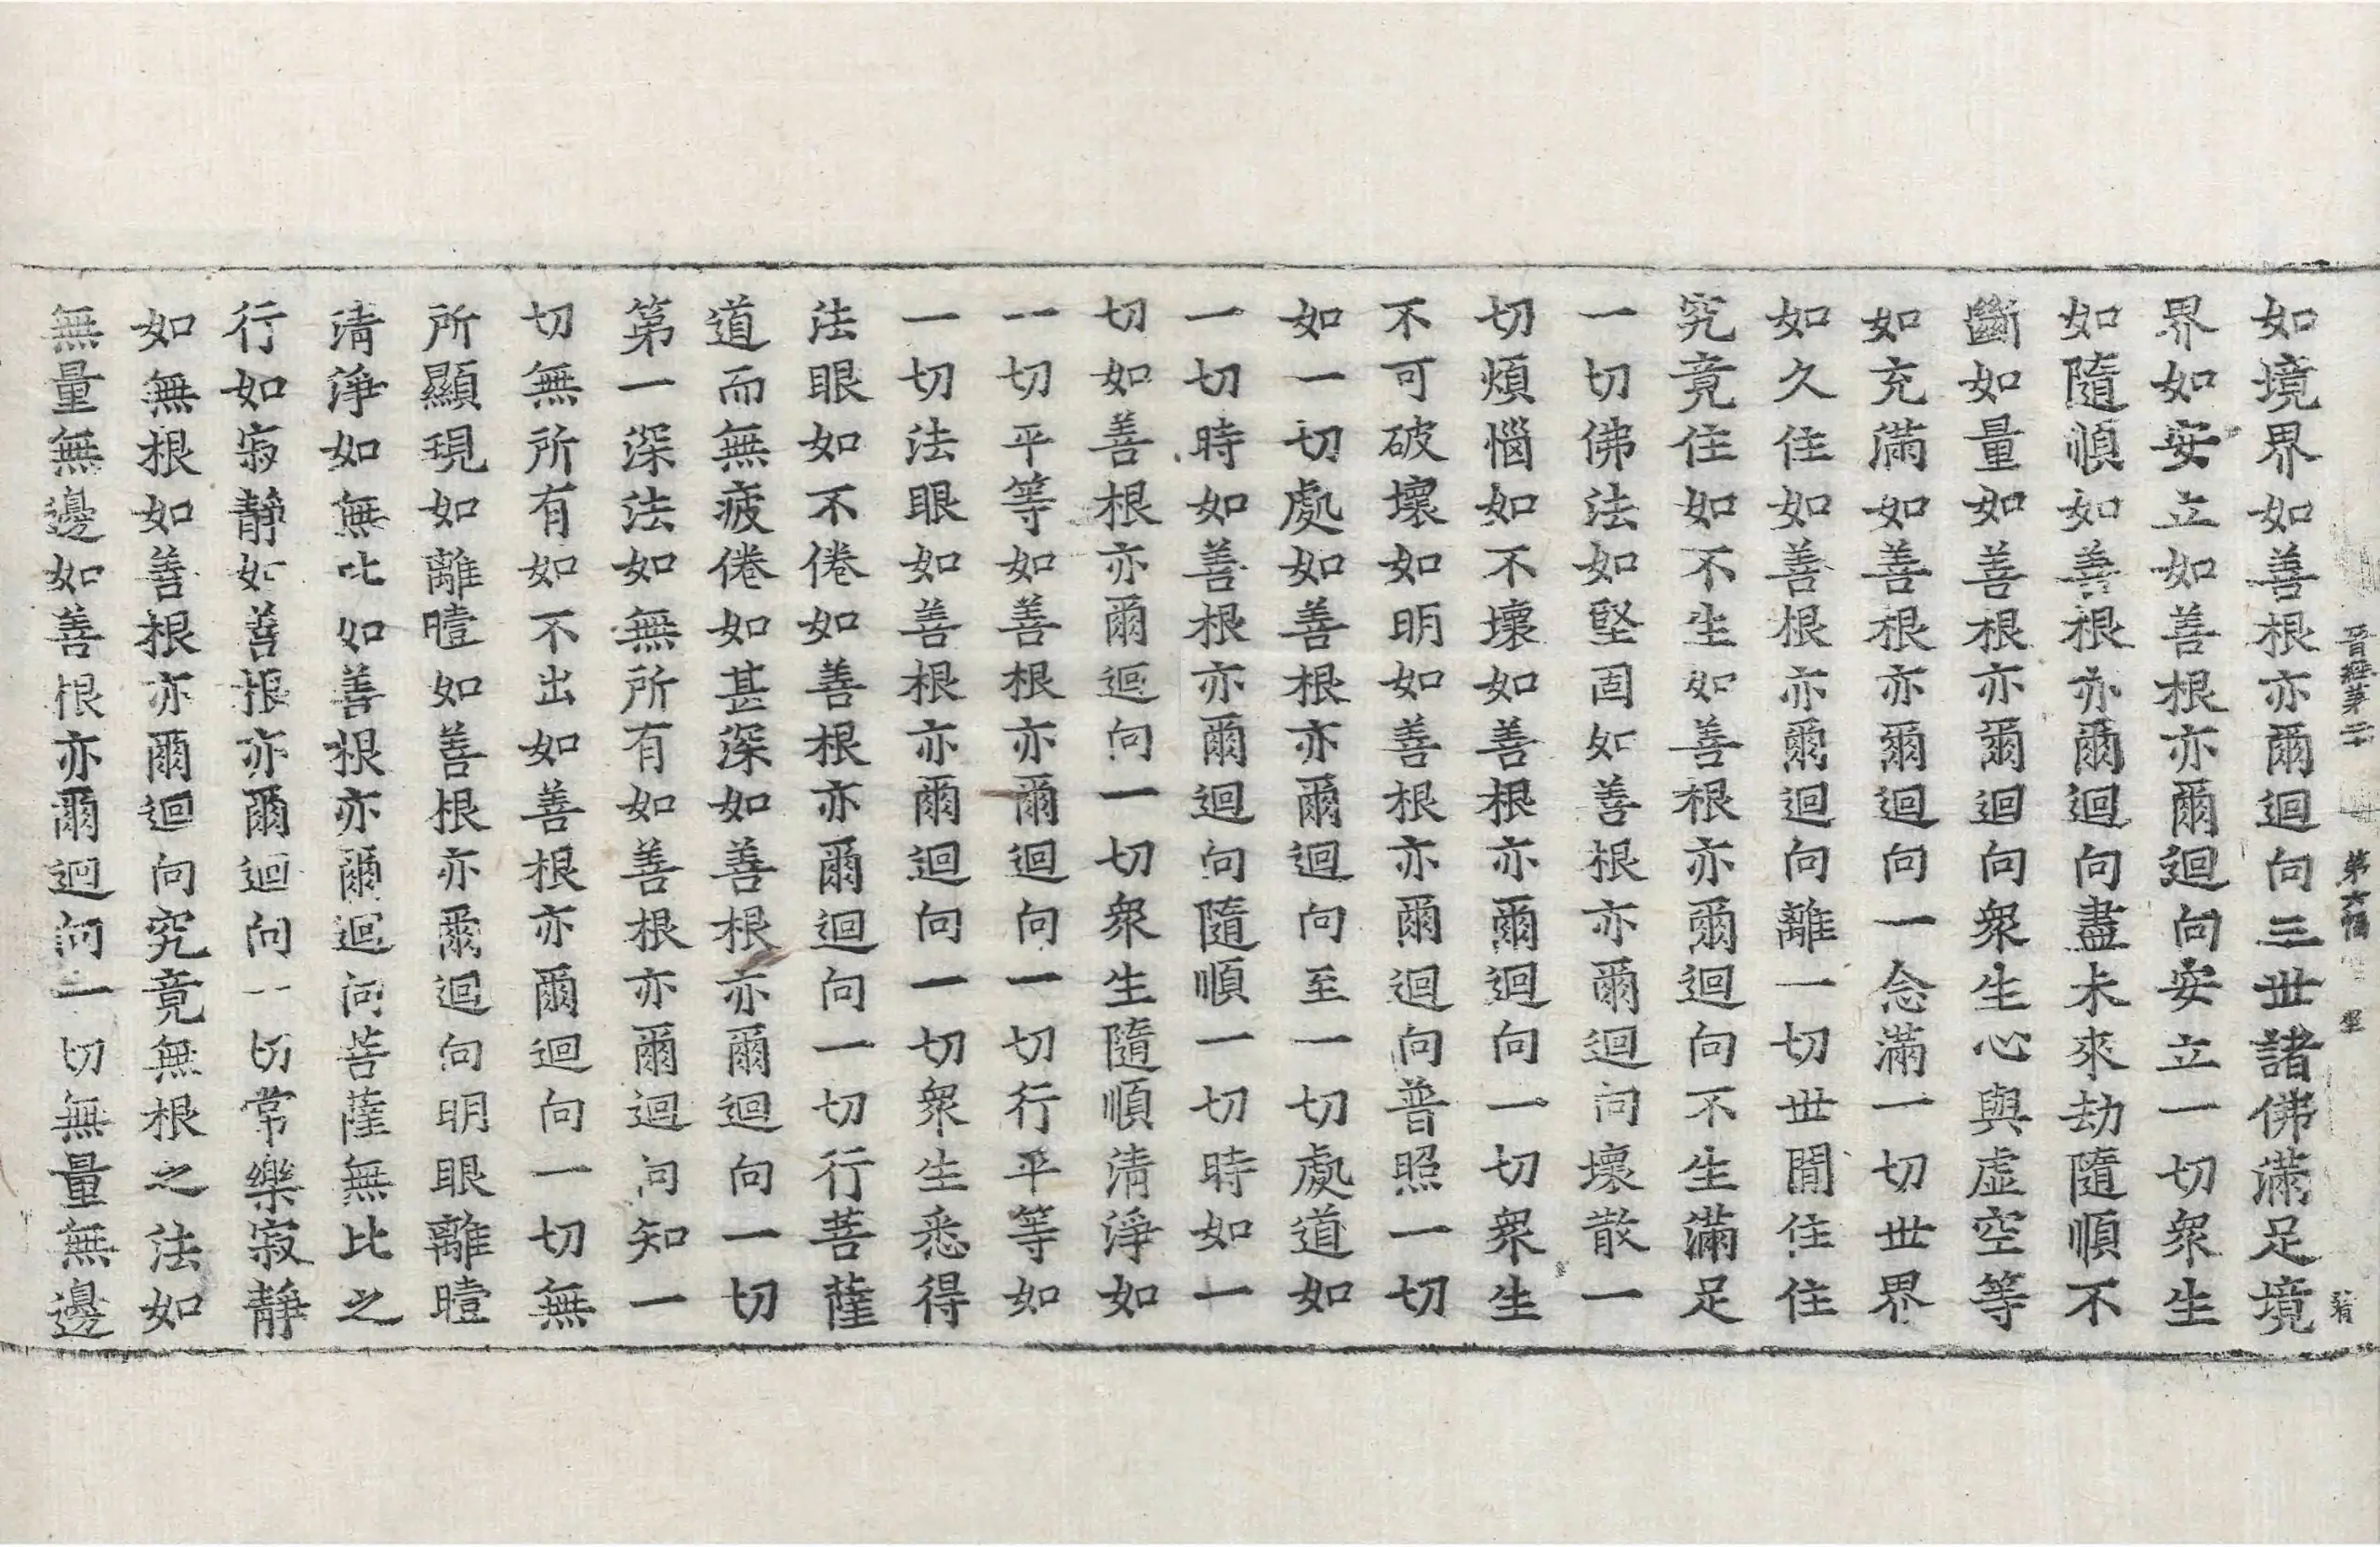 晉經第二十 第六幅 䍧
如境界如善根亦爾迴向三世諸佛滿足境
界如安立如善根亦爾迴向安立一切衆生
如隨順如善根亦爾迴向盡未來劫隨順不
斷如量如善根亦爾迴向衆生心與虛空等
如充滿如善根亦爾迴向一念滿一切世界
如久住如善根亦爾迴向離一切世間住住
究竟住如不生如善根亦爾迴向不生滿足
一切佛法如堅固如善根亦爾迴向壞散一
切煩惱如不壞如善根亦爾迴向一切衆生
不可破壞如明如善根亦爾迴向普照一切
如一切處如善根亦爾迴向至一切處道如
一切時如善根亦爾迴向隨順一切時如一
切如善根亦爾迴向一切衆生隨順清淨如
一切平等如善根亦爾迴向一切行平等如
一切法眼如善根亦爾迴向一切衆生悉得
法眼如不倦如善根亦爾迴向一切行菩薩
道而無疲倦如甚深如善根亦爾迴向一切
第一深法如無所有如善根亦爾迴向知一
切無所有如不出如善根亦爾迴向一切無
所顯現如離曀如善根亦爾迴向明眼離曀
清淨如無比如善根亦爾迴向菩薩無比之
行如寂靜如善根亦爾迴向一切常樂寂靜
如無根如善根亦爾迴向究竟無根之法如
無量無邊如善根亦爾迴向一切無量無邊